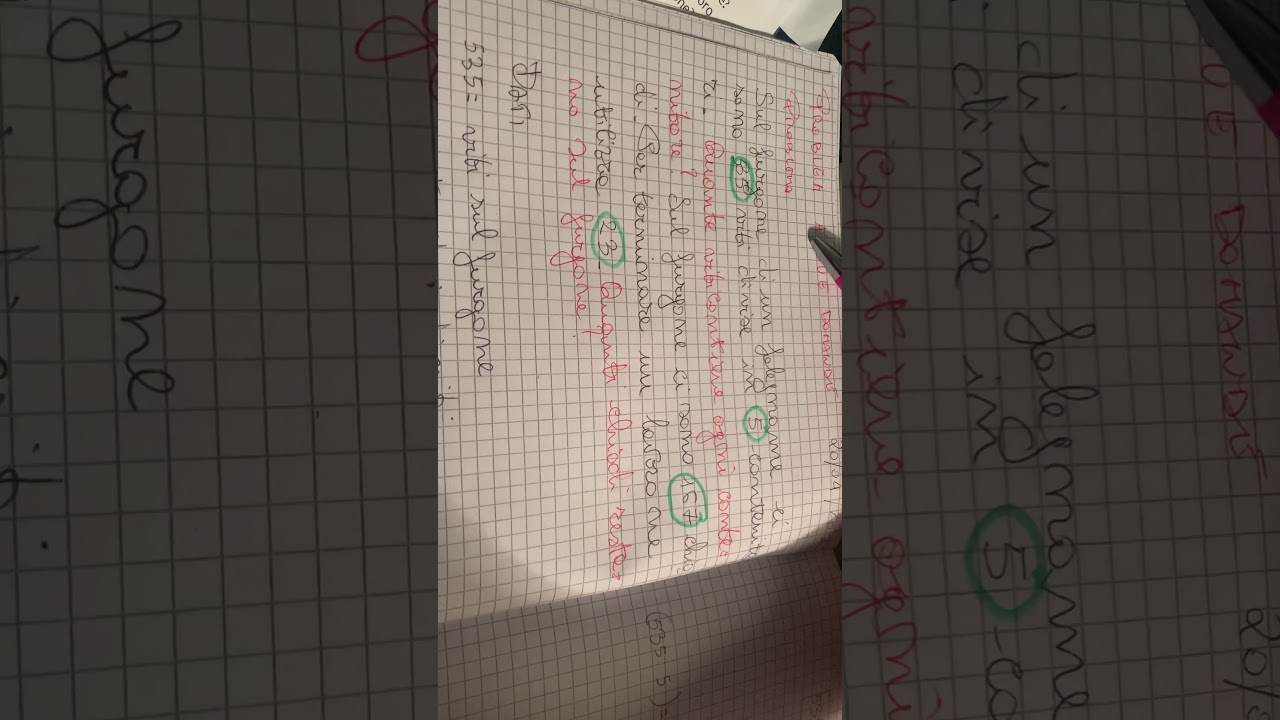 DUE DOMANDE
20/04
Sul furgone di un falegname ci
sono 535 viti divise in 5 conteni-
ri. Quante viti contiene ogni conte=
nitore? Sul furgone ci sono 157 chio
di. Per terminare un lavoro ne
utilizza 23. Quanti chiodi resta=
no sul furgone?
Dati
535= viti sul furgone
(535:5)=